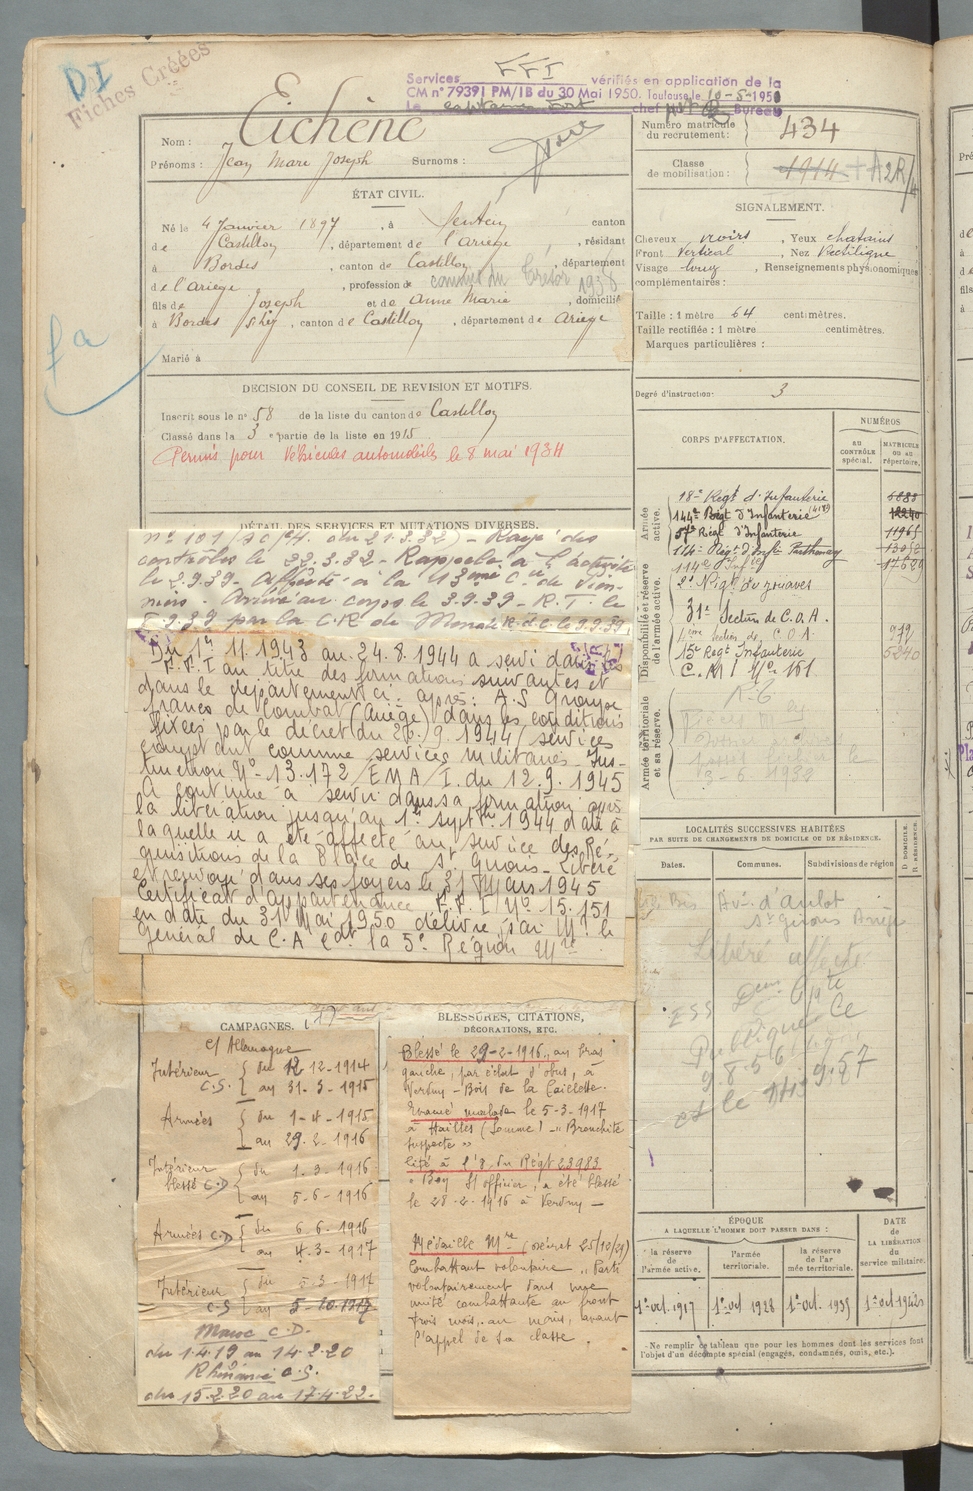 D.I
Fiches Créées
Services FFI vérifiés en application de la
CM n° 79391 PM/1B du 30 Mai 1950. Toulouse le 10-5-1951
Le capitaine chef Bureau
Nom : Eichène
Prénoms : Jean Marie Joseph Surnoms :
Numéro matricule
du recrutement : 434
Classe
de mobilisation : 1914 A2R/4
ÉTAT CIVIL.
Né le 4 Janvier 1897, à Sentein canton
de Castillon, département de l'Ariège, résidant
à Bordes, canton de Castillon, département
de l'ariège, profession de commis du Trésor 1938
fils de Joseph et de Anne Marie, domicilié
à Bordes s/Lez, canton de Castillon, département de Ariège
Marié à
fa
DÉCISION DU CONSEIL DE REVISION ET MOTIFS.
Inscrit sous le n° 58 de la liste du canton de Castillon
Classé dans la 3e partie de la liste en 1915
Permis pour Véhicules automobiles le 8 mai 1934
DÉTAIL DES SERVICES ET MUTATIONS DIVERSES.
n° 101 du 21.3.32) - Rayé des
contrôles le 22.3.32 - Rappelé à l'activité
le 2.9.39 - Affecté à la
Arrivé au corps le 3.9.39 - R.T. le
9.39 par la C.R. de R.d.l. le 9.9.39
Du 1er 11.1943 au 24.8.1944 a servi dans les
F.F.I au titre des formations suivantes et
dans le département ci-après: A.S Groupe
francs de combat (Ariège) dans les conditions
fixées par le décret du 20.9.1944 (services
comptant comme services militaires Ins-
truction N° 13.172/EMA/I. du 12.9.1945
A continué à servir dans sa formation après
la libération jusqu'au 1er sept 1944 date à
laquelle il a été affecté au service des Ré-
quisitions de la Place de St Girons - Libéré
et renvoyé dans ses foyers le 31 Mars 1945
Certificat d'appartenance F.F.I N° 15.151
en date du 31 Mai 1950 délivré par M. le
Général de C.A Cdt la 5e Région Mre
CAMPAGNES.
c/ Allemagne
Intérieur C.S. { du 12.12-1914
au 31-3-1915
Armées { du 1-4-1915
au 29.2-1916
Intérieur blessé C.D { du 1.3-1916
au 5-6-1916
Armées C.D { du 6.6.1916
au 4.3-1917
Intérieur C.S { du 5-3-1917
au 5-10-1917
Maroc C.D.
du 1.4.19 au 14.2.20
Rhénanie C.S.
du 15.2.20 au 17.4.22.
BLESSURES, CITATIONS,
DÉCORATIONS, ETC.
Blessé le 29-2-1916, au bras
gauche, par éclat d'obus, à
Verdun - Bois de la Caillette.
Evacué malade le 5-3-1917
à Hailles (Somme) - "Bronchite
suspecte"
Cité à l'o. du Régt 23983
"Bon S/officier, a été blessé
le 28-2-1916 à Verdun -
Médaille Mre (décret 25/10/21)
Combattant volontaire "Parti
volontairement dans une
unité combattante au front
trois mois, au moins, avant
l'appel de sa classe.
SIGNALEMENT.
Cheveux noirs, Yeux chatains
Front Vertical, Nez Rectiligne
Visage long, Renseignements physionomiques
complémentaires :
Taille : 1 mètre 64 centimètres.
Taille rectifiée : 1 mètre centimètres.
Marques particulières :
Degré d'instruction : 3
CORPS D'AFFECTATION.
NUMÉROS
AU CONTRÔLE spécial.
MATRICULE OU AU répertoire.
Armée active.
18e Regt d'Infanterie
144e Régt d'Infanterie 12240
57e Régt d'Infanterie 11965
114e Régt d'Infie Parthenay
114e Infie
Disponibilité et réserve de l'armée active.
2e Régt de zouaves
31e Section de C.O.A.
Section de C.O.A. 979
15e Regt Infanterie 5240
C.M I No 161
Armée territoriale et sa réserve.
3-6.1932
LOCALITÉS SUCCESSIVES HABITÉES
PAR SUITE DE CHANGEMENTS DE DOMICILE OU DE RÉSIDENCE.
Dates. Communes. Subdivisions de région D. DOMICILE. R. RÉSIDENCE.
Bis Av. d'aulot
St Girons Ariège
Libéré affecté
ESS
Publique
ÉPOQUE
A LAQUELLE L'HOMME DOIT PASSER DANS :
DATE DE LA LIBÉRATION du service militaire.
la réserve de l'armée active. l'armée territoriale. la réserve de l'armée territoriale.
1er oct. 1917 1er oct 1928 1er oct. 1935 1er oct 1942
- Ne remplir ce tableau que pour les hommes dont les services font
l'objet d'un décompte spécial (engagés, condamnés, omis, etc.).